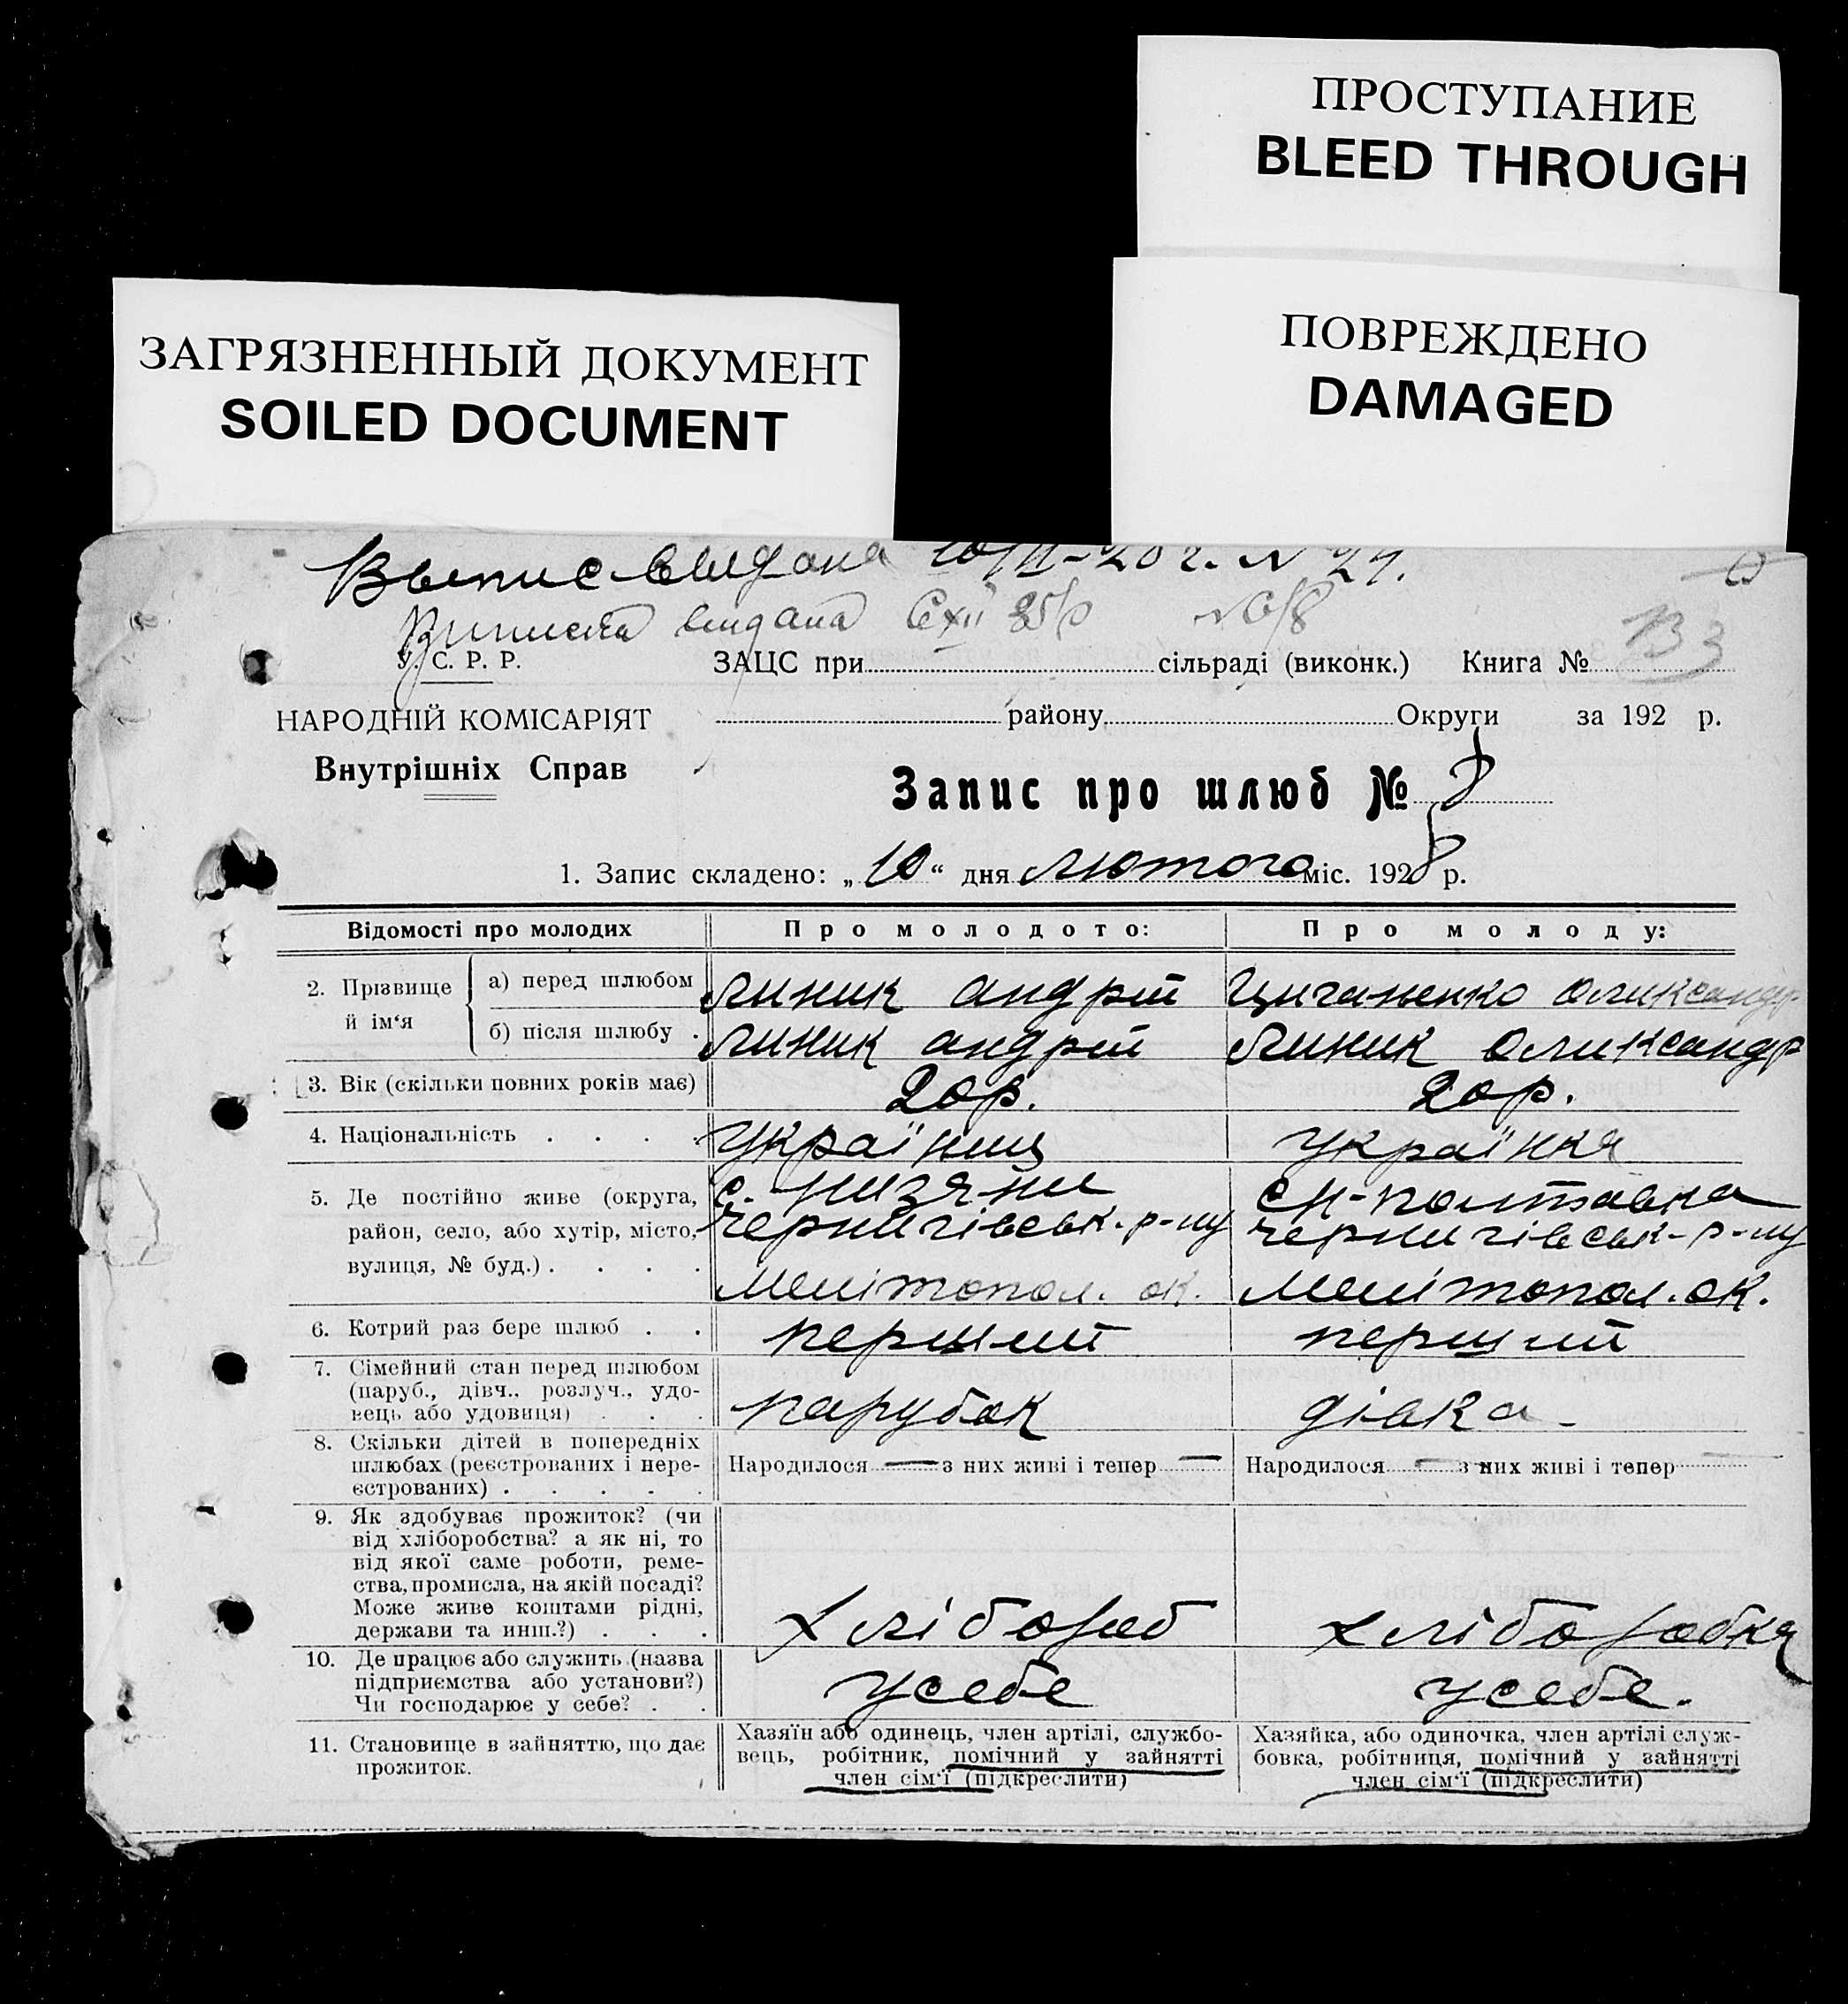 ПРОСТУПАНИЕ
BLEED THROUGH
ПОВРЕЖДЕНО
DAMAGED
ЗАГРЯЗНЕННЫЙ ДОКУМЕНТ
SOILED DOCUMENT
Выпис видана
видана
У. С. Р. Р.
ЗАЦС при сільраді (виконк.) Книга №
НАРОДНІЙ КОМІСАРІЯТ
району Округи за 192 р.
Внутрішніх Справ
Запис про шлюб № 8
1. Запис складено: „10“ дня лютого міс. 1928 р.
Відомості про молодих Про молодото: Про молоду:
2. Прізвище й ім‘я
а) перед шлюбом Линик Андрій Циганенко Олександр
б) після шлюбу . Линик Андрій Линик Олександр
3. Вік (скільки повних років має) 20 р. 20 р.
4. Національність . . . . Українець Українка
5. Де постійно живе (округа, с.
район, село, або хутір, місто, Чернигівськ. р-ну Чернигівськ-р-ну
вулиця, № буд.) . . . . Мелітопол. ок. Мелітопол. ок.
6. Котрий раз бере шлюб . . перший перший
7. Сімейний стан перед шлюбом
(паруб., дівч.. розлуч., удо-
вець або удовиця) . . . парубок дівка
8. Скільки дітей в попередніх
шлюбах (реєстрованих і нере- Народилося — з них живі і тепер — Народилося — з них живі і тепер
естрованих) . . . . .
9. Як здобуває прожиток? (чи
від хліборобства? а як ні, то
від якої саме роботи, реме-
ства, промисла, на якій посаді?
Може живе коштами рідні,
держави та инш.?) . . . Хлібороб Хліборобка
10. Де працює або служить (назва
підприємства або установи?) усебе усебе.
Чи господарює у себе? . .
11. Становище в зайняттю, що дає
прожиток.
Хазяїн або одинець, член артілі, службо-
вець, робітник, помічний у зайнятті
член сім‘ї (підкреслити)
Хазяйка, або одиночка, член артілі служ-
бовка, робітниця, помічний у зайнятті
член сім‘ї (підкреслити)